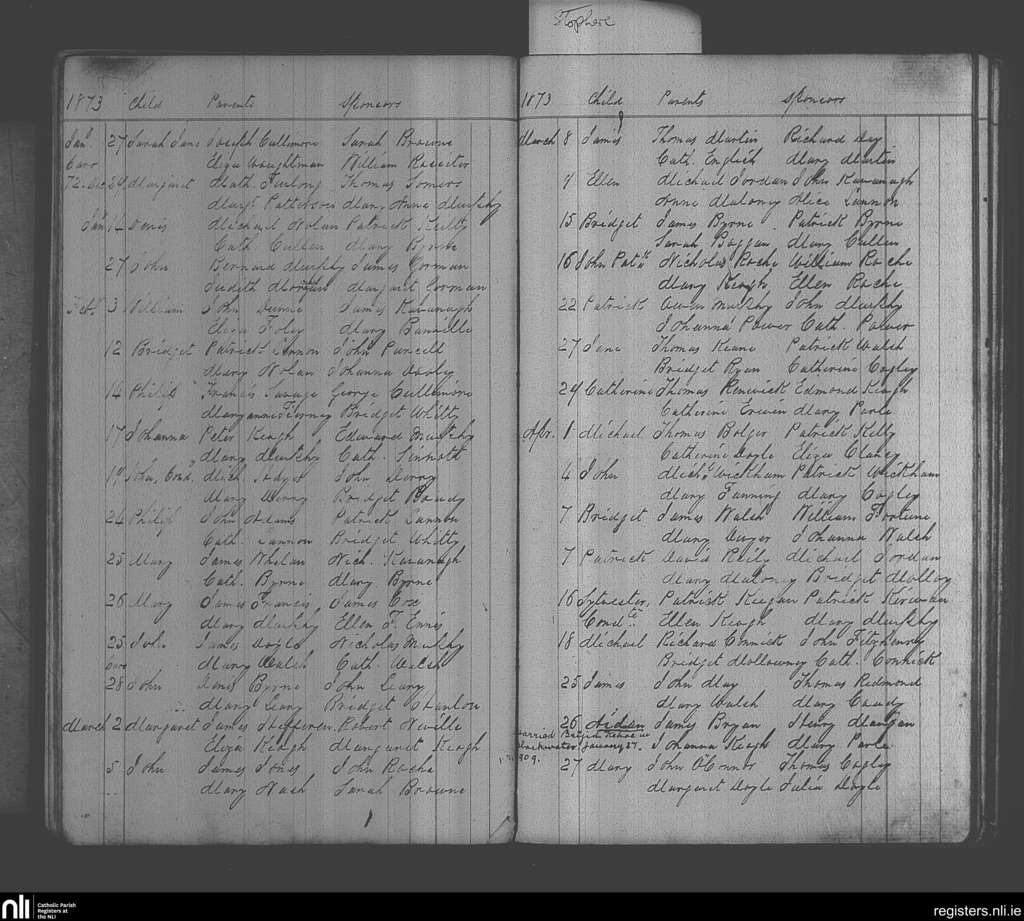 Stophere
1873 Child Parents Sponsors
Jan. 27 Sarah Jane Joseph Cullimore Sarah Browne
Eliza William Rossiter
72. Dec. Margaret Math. Furlong Thomas Somers
Margt. Patterson Mary Anne Murphy
Jan 14 Denis Michael Nolan Patrick Kelly
Cath. Cullen Mary Byrne
27 John Bernard Murphy James Gorman
Judith Margaret Gorman
Feb. 3 William John James Kavanagh
Eliza Foley Mary Banville
12 Bridget Patrick Lennon John Purcell
Mary Nolan Johanna
14 Philip Francis Savage George Cullimore
Mary Anne Bridget Whitty
17 Johanna Peter Keogh Edward Murphy
Mary Murphy Cath. Sinnott
19 John, Mich. John
Mary Bridget
24 Philip John Adams Patrick Lannon
Cath. Lannon Bridget Whitty
25 Mary James Whelan Nich. Kavanagh
Cath. Byrne Mary Byrne
26 Mary James Francis James Cox
Mary Murphy Ellen F. Ennis
25 John James Doyle Nicholas Murphy
Mary Walsh Cath. Walsh
28 John James Byrne John Leary
Mary Leary Bridget Scanlon
March 2 Margaret James Robert Neville
Eliza Keogh Margaret Keogh
5 John James Jones John Roche
Mary Nash Sarah Browne
1873 Child Parents Sponsors
March 8 James Thomas Martin Richard Day
Cath. English Mary Martin
9 Ellen Michael Jordan John Kavanagh
Anne Maloney Alice Lannon
15 Bridget James Byrne Patrick Byrne
Sarah Boggan Mary Cullen
16 John Patk. Nicholas Roche William Roche
Mary Keogh Ellen Roche
22 Patrick Owen Murphy John Murphy
Johanna Power Cath. Power
27 Jane Thomas Keane Patrick Walsh
Bridget Ryan Catherine Cogley
29 Catherine Thomas Renwick Edmond Keogh
Catherine Erwin Mary Parle
Apr. 1 Michael Thomas Bolger Patrick Kelly
Catherine Doyle Eliza Clancy
4 John Michl. Wickham Patrick Wickham
Mary Fanning Mary Cogley
7 Bridget James Walsh William Fortune
Mary Johanna Walsh
7 Patrick David Reily Michael Jordan
Mary Maloney Bridget Molloy
16 Sylvester, Patrick Keegan Patrick Kirwan
Condte. Ellen Keogh Mary Murphy
18 Michael Richard Connick John Fitzhenry
Bridget Mollowney Cath. Connick
25 James John May Thomas Redmond
Mary Walsh Mary Caudy
26 Aiden James Bryan Henry Mangan
married Kehoe in
Blackwater January 27. Johanna Keogh Mary Parle
1909.
27 Mary John O'Connor Thomas Cogley
Margaret Doyle Julia Doyle
nli Catholic Parish
Registers at
the NLI
registers.nli.ie